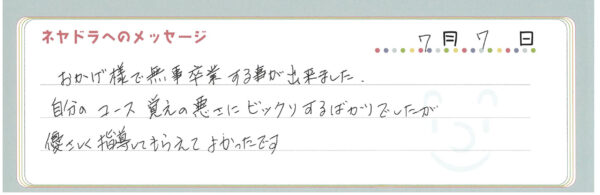 ネヤドラへのメッセージ
7月 7 日
おかげ様で無事卒業する事が出来ました.
自分の コース 覚えの悪さに ビックリするばかりでしたが
優さしく指導してもらえて よかったです